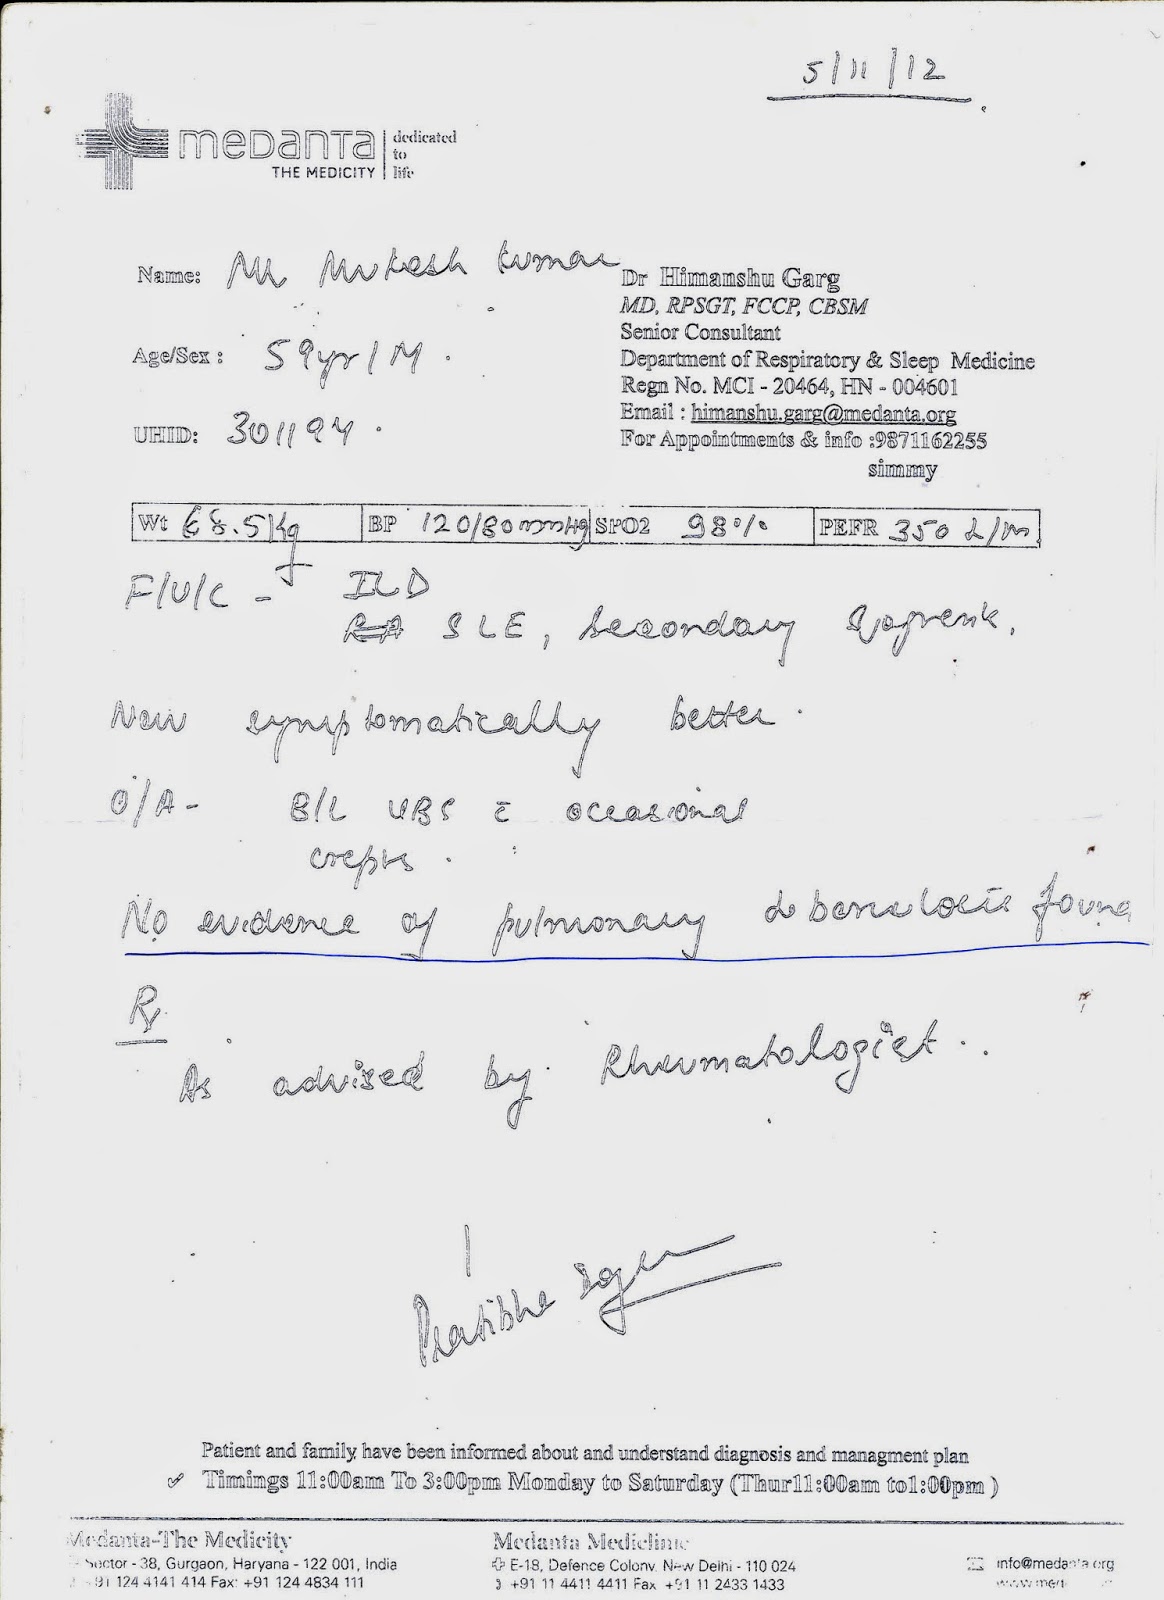 5/11/12
medanta
dedicated
to
life
THE MEDICITY
Name: Mr Mukesh Kumar
Dr Himanshu Garg
MD, RPSGT, FCCP, CBSM
Senior Consultant
Age/Sex : 59yr/M.
Department of Respiratory & Sleep Medicine
Regn No. MCI - 20464, HN - 004601
Email : himanshu.garg@medanta.org
UHID: 301194.
For Appointments & info :9871162255
simmy
Wt 68.5Kg BP 120/80mmHg SPO2 98% PEFR 350 L/m
F/U/C - ILD
RA SLE, Secondary Sjogrens.
Now symptomatically better.
O/A- B/L VBS c̄ occasional
crepts.
No evidence of pulmonary tuberculosis found
Rx
As advised by Rheumatologist..
Pratibha
Patient and family have been informed about and understand diagnosis and managment plan
✓ Timings 11:00am To 3:00pm Monday to Saturday (Thur11:00am to1:00pm )
Medanta-The Medicity
Sector - 38, Gurgaon, Haryana - 122 001, India
+91 124 4141 414 Fax: +91 124 4834 111
Medanta Mediclinic
E-18, Defence Colony, New Delhi - 110 024
+91 11 4411 4411 Fax +91 11 2433 1433
info@medanta.org